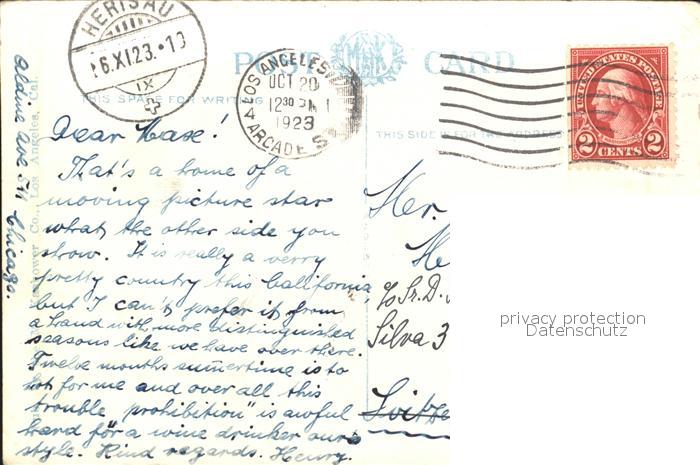 HERISAU
26.XI.23.-10
IX
POST CARD
THIS SPACE FOR WRITING
LOS ANGELES
OCT 20
12 30 PM
1923
ARCADE STA
4
THIS SIDE IS FOR THE ADDRESS
UNITED STATES POSTAGE
2 CENTS 2
Dear Hase!
That's a home of a
moving picture star
what the other side you
show. It is really a verry
pretty country this California,
but I can't prefer it from
a land with more distinguished
seasons like we have over there.
Twelve months summertime is to
hot for me and over all this
trouble "prohibition" is awful
hard för a wine drinker our's
style. Kind regards. Henry.
Aldine Ave 511 Chicago.
Co., Los Angeles, Cal.
Mr.
c/o Sr. D.
Silva 3
Switze
privacy protection
Datenschutz